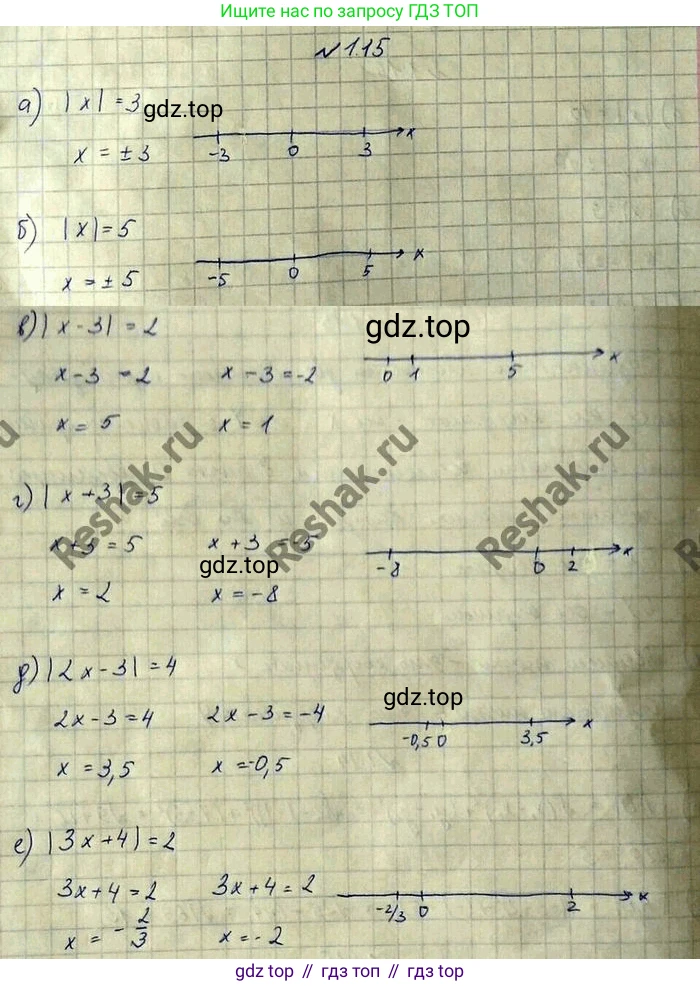 Ищите нас по запросу ГДЗ ТОП
№ 1.15
а) |x| = 3
gdz.top
x = ±3
-3 0 3 x
б) |x| = 5
x = ±5
-5 0 5 x
в) |x-3| = 2
gdz.top
x-3 = 2 x-3 = -2
0 1 5 x
x = 5 x = 1
Reshak.ru
Reshak.ru
Reshak.ru
г) |x+3| = 5
x+3 = 5 x+3 = -5
gdz.top
-8 0 2 x
x = 2 x = -8
д) |2x-3| = 4
gdz.top
2x-3 = 4 2x-3 = -4
-0,5 0 3,5 x
x = 3,5 x = -0,5
е) |3x+4| = 2
3x+4 = 2 3x+4 = 2
-2/3 0 2 x
x = -2/3 x = -2
gdz top // гдз топ // gdz.top